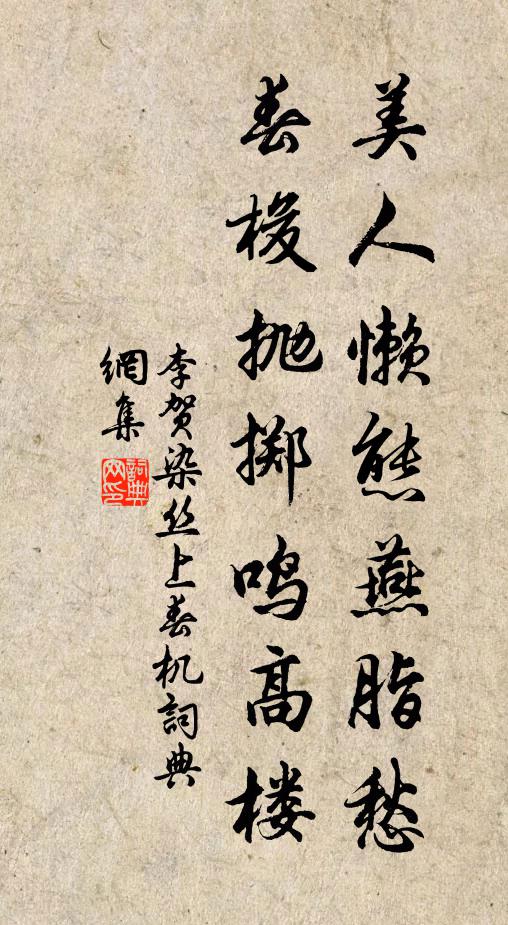 美人懒態燕脂愁
春梭抛掷鸣高楼
李贺染丝上春机詞典
網集
詞典
网印